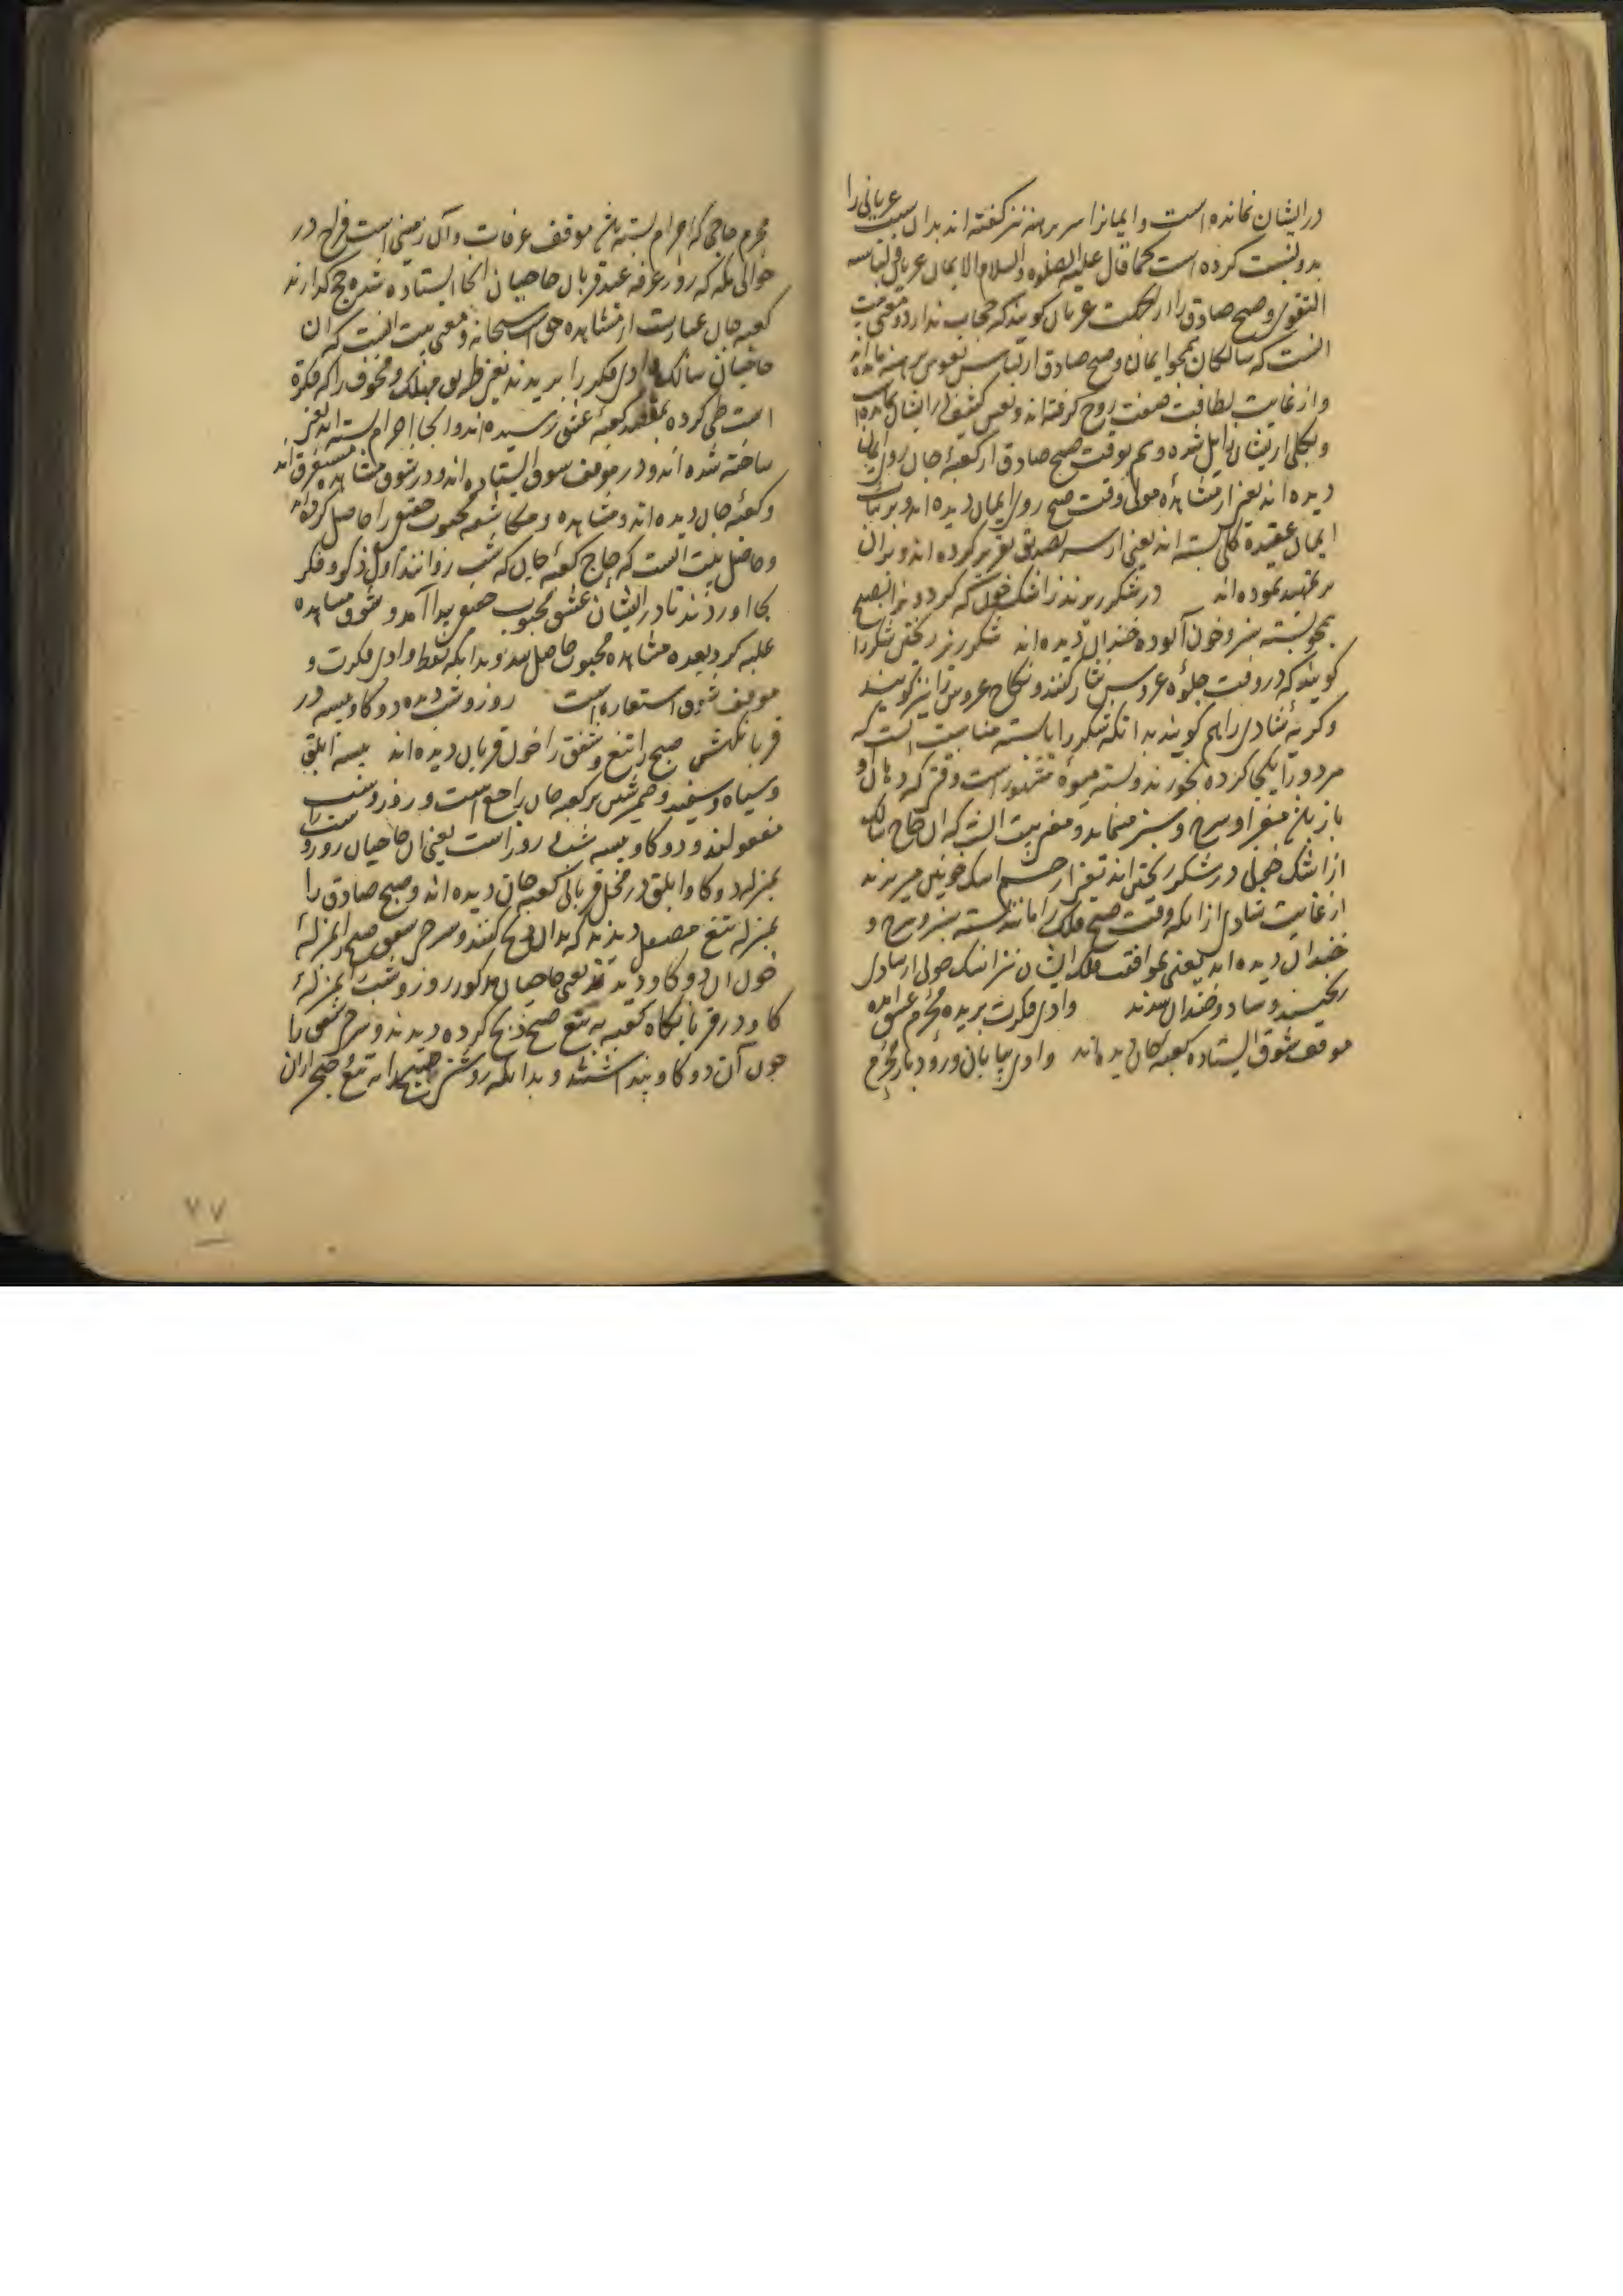 در ایشان نمانده است و ایمانرا سر برهنه نیز گفته اند بدان سبب عریانی را
بدو نسبت کرده است کما قال علیه الصلوه والسلام الایمان عریان و لباسه
التقوی و صبح صادق را عریان گویند که حجاب ندارد و معنی بیت
آنست که سالکان همچو ایمان و صبح صادق از لباس نفوس برهنه مانده اند
و از غایت لطافت صفت روح گرفته اند و نفس کثیف را ایشان
و بکلی از ایشان زایل شده و هم بوقت صبح صادق از کعبهٔ جان روی ایمان
دیده اند یعنی از مشاهدهٔ مولی وقت صبح روی ایمان دیده اند و بر ثبات
ایمان عقیدهٔ کلی بسته اند یعنی از سر تصدیق تقریر کرده اند و بران
نموده اند در شکرریزند ز اشک خوش که گردون را بصبح
همچو پسته سبز و خون آلوده خندان دیده اند شکرریز ریختن شکر را
گویند که در وقت جلوهٔ عروس نثار کنند و نکاح عروس را نیز گویند
و گریهٔ شادی را هم گویند بدانکه شکر را با پسته مناسبت است که
مردو را یکجا کرده بخورند و پسته میوهٔ مشهور است وقتی که دهان او
باز مغز او سرخ و سبز مینماید و معنی بیت آنست که آن حاج سالک
از اشک در شکر ریختن اند یعنی از چشم اشک خویش میریزند
از غایت شادی از آنکه وقت صبح فلک را مانند پسته سبز و سرخ و
خندان دیده اند یعنی بموافقت فلک ایشان نیز اشک از شادی
ریختند و شاد و خندان شدند وادی فکرت بریده محرم عشق آمده
موقف شوق ایستاده کعبهٔ جان دیده اند وادی بیابان و رود بار محرم
محرم حاجی که احرام بسته باشد موقف عرفات و آن زمینی است فراخ در
حوالی مکه که روز عرفه عید قربان حاجیان آنجا ایستاده شده حج گذارند
کعبه جان عبارت از مشاهده حق سبحانه و معنی بیت آنست که آن
حاجیان سالک وادی فکر را بریدند یعنی طریق مهلک و مخوف را که فکرة
است طی کرده بمقصد کعبهٔ عشق رسیده اند و آنجا احرام بسته اند یعنی
ساخته شده اند و در موقف شوق ایستاده اند و در شوق مشاهده مستغرق اند
و کعبهٔ جان دیده اند و مشاهده و مکاشفه محبوب حقیقی را حاصل کرده اند
و حاصل بیت آنست که حاج کعبهٔ جان که شب روانند اول ذکر و فکر
بجا آوردند تا در ایشان عشق محبوب حقیقی پیدا آمد و شوق مشاهده
غلبه کرد بعده مشاهده محبوب حاصل شد و بدانکه لفظ وادی فکرت و
موقف شوق استعاره است روز و شب دیده دو گاو پیسه در
قربانگهش صبح را تیغ و شفق را خون قربان دیده اند پیسه ابلق
و سیاه و سفید و ضمیر شین بر کعبه جان راجع است و روز و شب
مفعولند و دو گاو پیسه شب و روز است یعنی آن حاجیان روز و شب را
بمنزله دو گاو ابلق در محل قربانی کعبه جان دیده اند و صبح صادق را
بمنزله تیغ مصقل دیدند که بدان ذبح کنند و سرخی شفق صبح را بمنزلهٔ
خون آن دو گاو دیدند یعنی حاجیان مذکور روز و شب را بمنزلهٔ
گاو در قربانگاه کعبه به تیغ صبح ذبح کرده دیدند و سرخی شفق را
خون آن دو گاو پنداشتند و بدانکه روشنی صبح را به تیغ
۷۷